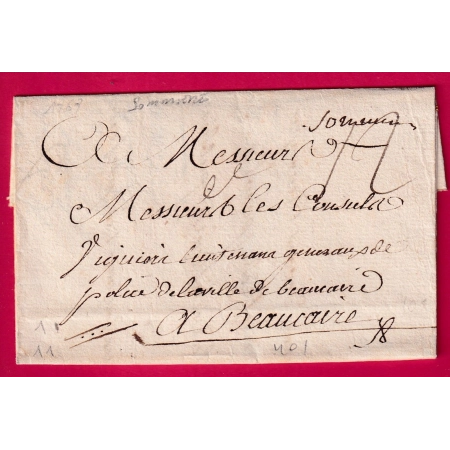 1763 Sommieres
Somieres
A Messieurs
Messieurs les Consuls
Viguier lieutenans generaux de
police de la ville de beaucaire
A Beaucaire
11
401